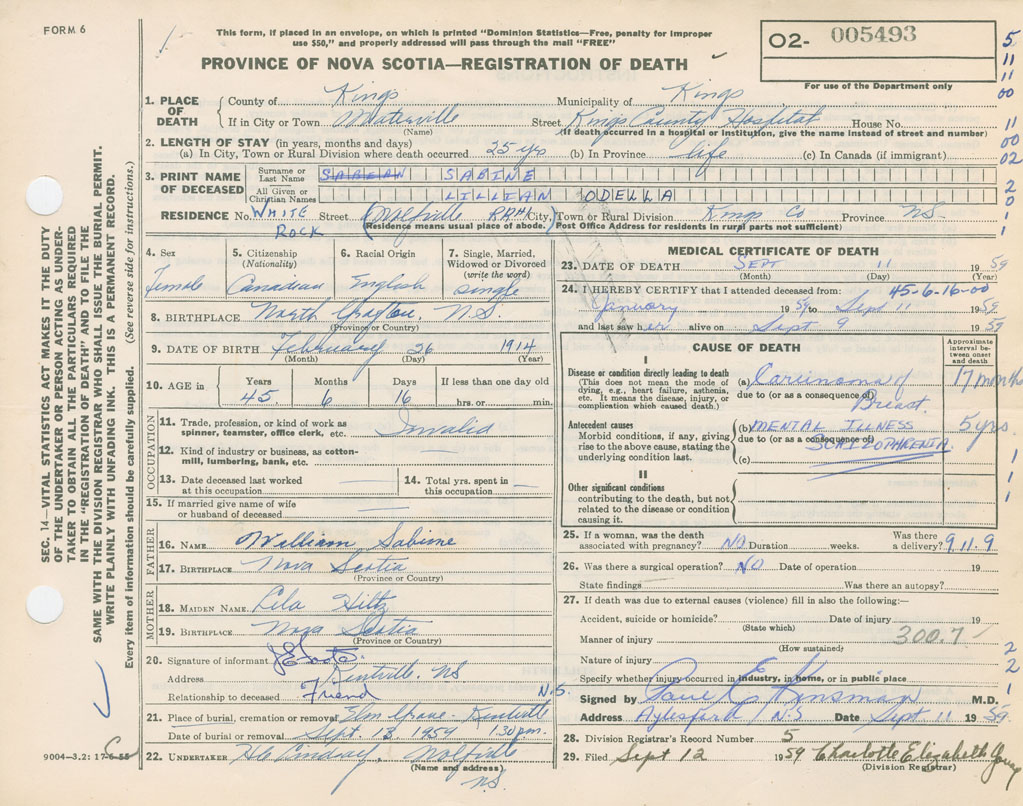 FORM 6
This form, if placed in an envelope, on which is printed "Dominion Statistics—Free, penalty for improper
use $50," and properly addressed will pass through the mail "FREE"
PROVINCE OF NOVA SCOTIA—REGISTRATION OF DEATH
O2- 005493
For use of the Department only
5
11
11
00
11
00
02
2
0
1
1
1. PLACE OF DEATH { County of Kings Municipality of Kings
If in City or Town Waterville (Name) Street Kings County Hospital House No.
(If death occurred in a hospital or institution, give the name instead of street and number)
2. LENGTH OF STAY (in years, months and days)
(a) In City, Town or Rural Division where death occurred 25 yrs (b) In Province life (c) In Canada (if immigrant)
3. PRINT NAME OF DECEASED { Surname or Last Name SABEAN SABINE
All Given or Christian Names LILLIAN ODELLA
RESIDENCE No. WHITE ROCK Street (Wolfville RR#1 City, Town or Rural Division Kings Co Province N.S.
(Residence means usual place of abode. Post Office Address for residents in rural parts not sufficient)
4. Sex Female
5. Citizenship (Nationality) Canadian
6. Racial Origin English
7. Single, Married, Widowed or Divorced (write the word) single
8. BIRTHPLACE North Grafton, N.S.
(Province or Country)
9. DATE OF BIRTH February 26 1914
(Month) (Day) (Year)
10. AGE in Years 45 Months 6 Days 16 If less than one day old
hrs. or min.
OCCUPATION
11. Trade, profession, or kind of work as spinner, teamster, office clerk, etc. Invalid
12. Kind of industry or business, as cotton-mill, lumbering, bank, etc.
13. Date deceased last worked at this occupation
14. Total yrs. spent in this occupation
15. If married give name of wife or husband of deceased
FATHER
16. NAME William Sabine
17. BIRTHPLACE Nova Scotia
(Province or Country)
MOTHER
18. MAIDEN NAME Lila Hiltz
19. BIRTHPLACE Nova Scotia
(Province or Country)
20. Signature of informant
Address Kentville, N.S.
Relationship to deceased Friend
21. Place of burial, cremation or removal Elm Grove - Kentville N.S.
Date of burial or removal Sept. 13 1959 1:30 p.m.
22. UNDERTAKER Lindsay, Wolfville N.S.
(Name and address)
MEDICAL CERTIFICATE OF DEATH
23. DATE OF DEATH SEPT 11 1959
(Month) (Day)
24. I HEREBY CERTIFY that I attended deceased from: 45-6-16-00
January 1959 to Sept 11 1959
and last saw her alive on Sept 9 1959
CAUSE OF DEATH
Approximate interval between onset and death
I
Disease or condition directly leading to death
(This does not mean the mode of dying, e.g., heart failure, asthenia, etc. It means the disease, injury, or complication which caused death.)
(a) Carcinoma of Breast. 17 months
due to (or as a consequence of)
Antecedent causes
Morbid conditions, if any, giving rise to the above cause, stating the underlying condition last.
(b) MENTAL ILLNESS 5 yrs
due to (or as a consequence of) SCHIZOPHRENIA
(c)
1
1
1
II
Other significant conditions
contributing to the death, but not related to the disease or condition causing it.
25. If a woman, was the death associated with pregnancy? NO Duration weeks. Was there a delivery? 9.11.9
26. Was there a surgical operation? NO Date of operation 19
State findings Was there an autopsy?
27. If death was due to external causes (violence) fill in also the following:—
Accident, suicide or homicide? Date of injury 19
(State which)
Manner of injury 300.7
(How sustained)
Nature of injury
Specify whether injury occurred in industry, in home, or in public place
2
2
1
Signed by E Kinsman M.D.
Address Aylesford N.S Date Sept 11 1959
28. Division Registrar's Record Number 5
29. Filed Sept 12 1959 Charlotte Elizabeth Young
(Division Registrar)
SEC. 14—VITAL STATISTICS ACT MAKES IT THE DUTY
OF THE UNDERTAKER OR PERSON ACTING AS UNDER-
TAKER TO OBTAIN ALL THE PARTICULARS REQUIRED
IN THE "REGISTRATION OF DEATH" AND TO FILE THE
SAME WITH THE DIVISION REGISTRAR WHO SHALL ISSUE THE BURIAL PERMIT.
WRITE PLAINLY WITH UNFADING INK. THIS IS A PERMANENT RECORD.
Every item of information should be carefully supplied. (See reverse side for instructions.)
9004—3.2: 17-6-55